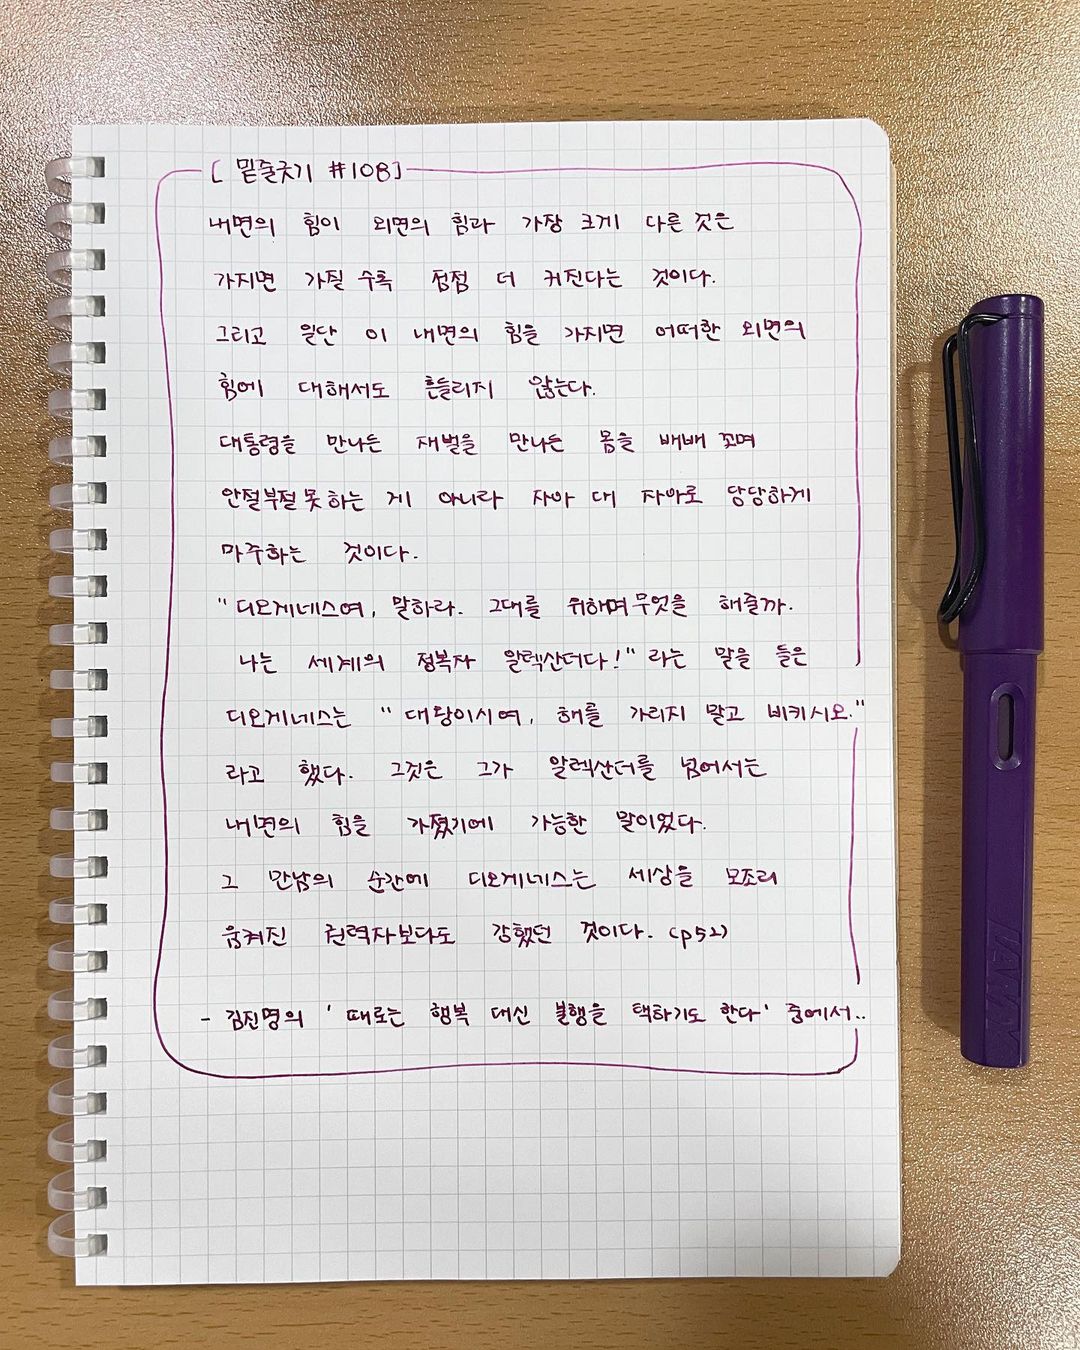 [ 밑줄긋기 #108]
내면의 힘이 외면의 힘과 가장 크게 다른 것은
가지면 가질 수록 점점 더 커진다는 것이다.
그리고 일단 이 내면의 힘을 가지면 어떠한 외면의
힘에 대해서도 흔들리지 않는다.
대통령을 만나든 재벌을 만나든 몸을 배배 꼬며
안절부절 못 하는 게 아니라 자아 대 자아로 당당하게
마주하는 것이다.
"디오게네스여, 말하라. 그대를 위하여 무엇을 해줄까.
나는 세계의 정복자 알렉산더다!" 라는 말을 들은
디오게네스는 "대왕이시여, 해를 가리지 말고 비키시오."
라고 했다. 그것은 그가 알렉산더를 넘어서는
내면의 힘을 가졌기에 가능한 말이었다.
그 만남의 순간에 디오게네스는 세상을 모조리
움켜진 권력자보다도 강했던 것이다. (p52)
- 김진명의 '때로는 행복 대신 불행을 택하기도 한다' 중에서..
LAMY